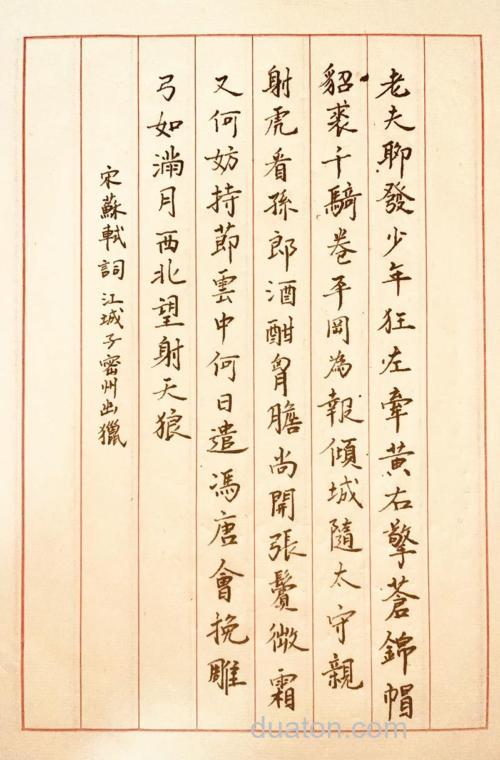 老夫聊發少年狂左牽黄右擎蒼錦帽
貂裘千騎卷平岡為報傾城隨太守親
射虎看孫郎酒酣胷膽尚開張鬢微霜
又何妨持節雲中何日遣馮唐會挽雕
弓如滿月西北望射天狼
宋蘇軾詞江城子密州出獵
duaton.com